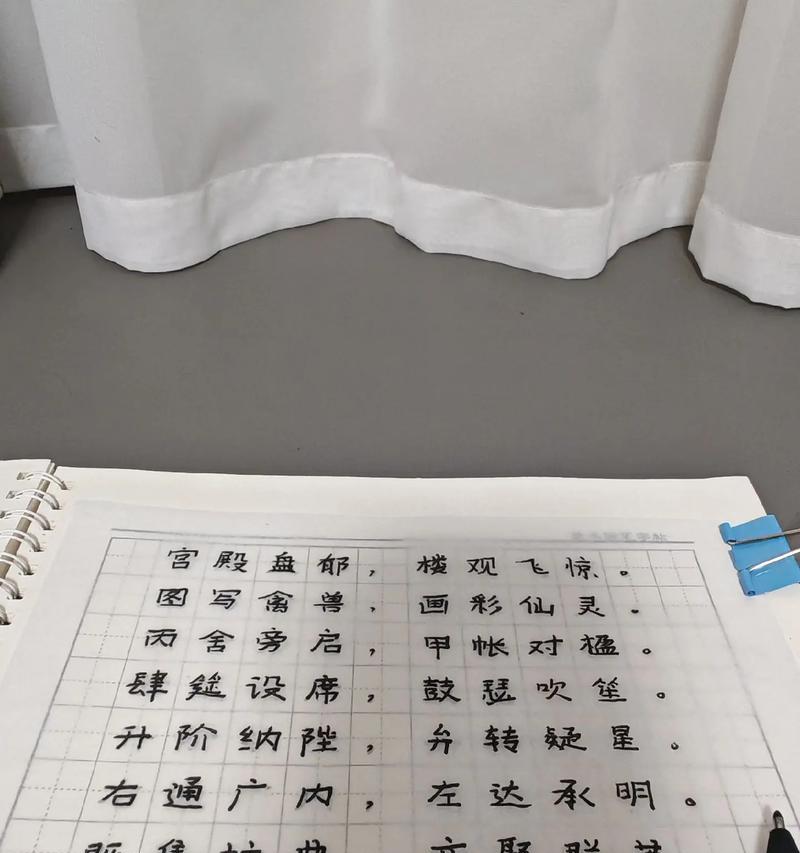 宫殿盘郁，楼观飞惊。
图写禽兽，画彩仙灵。
丙舍旁启，甲帐对楹。
肆筵设席，鼓瑟吹笙。
升阶纳陛，弁转疑星。
右通广内，左达承明。
既集坟典，亦聚群英